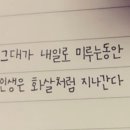 그대가 내일로 미루는동안
인생은 화살처럼 지나간다